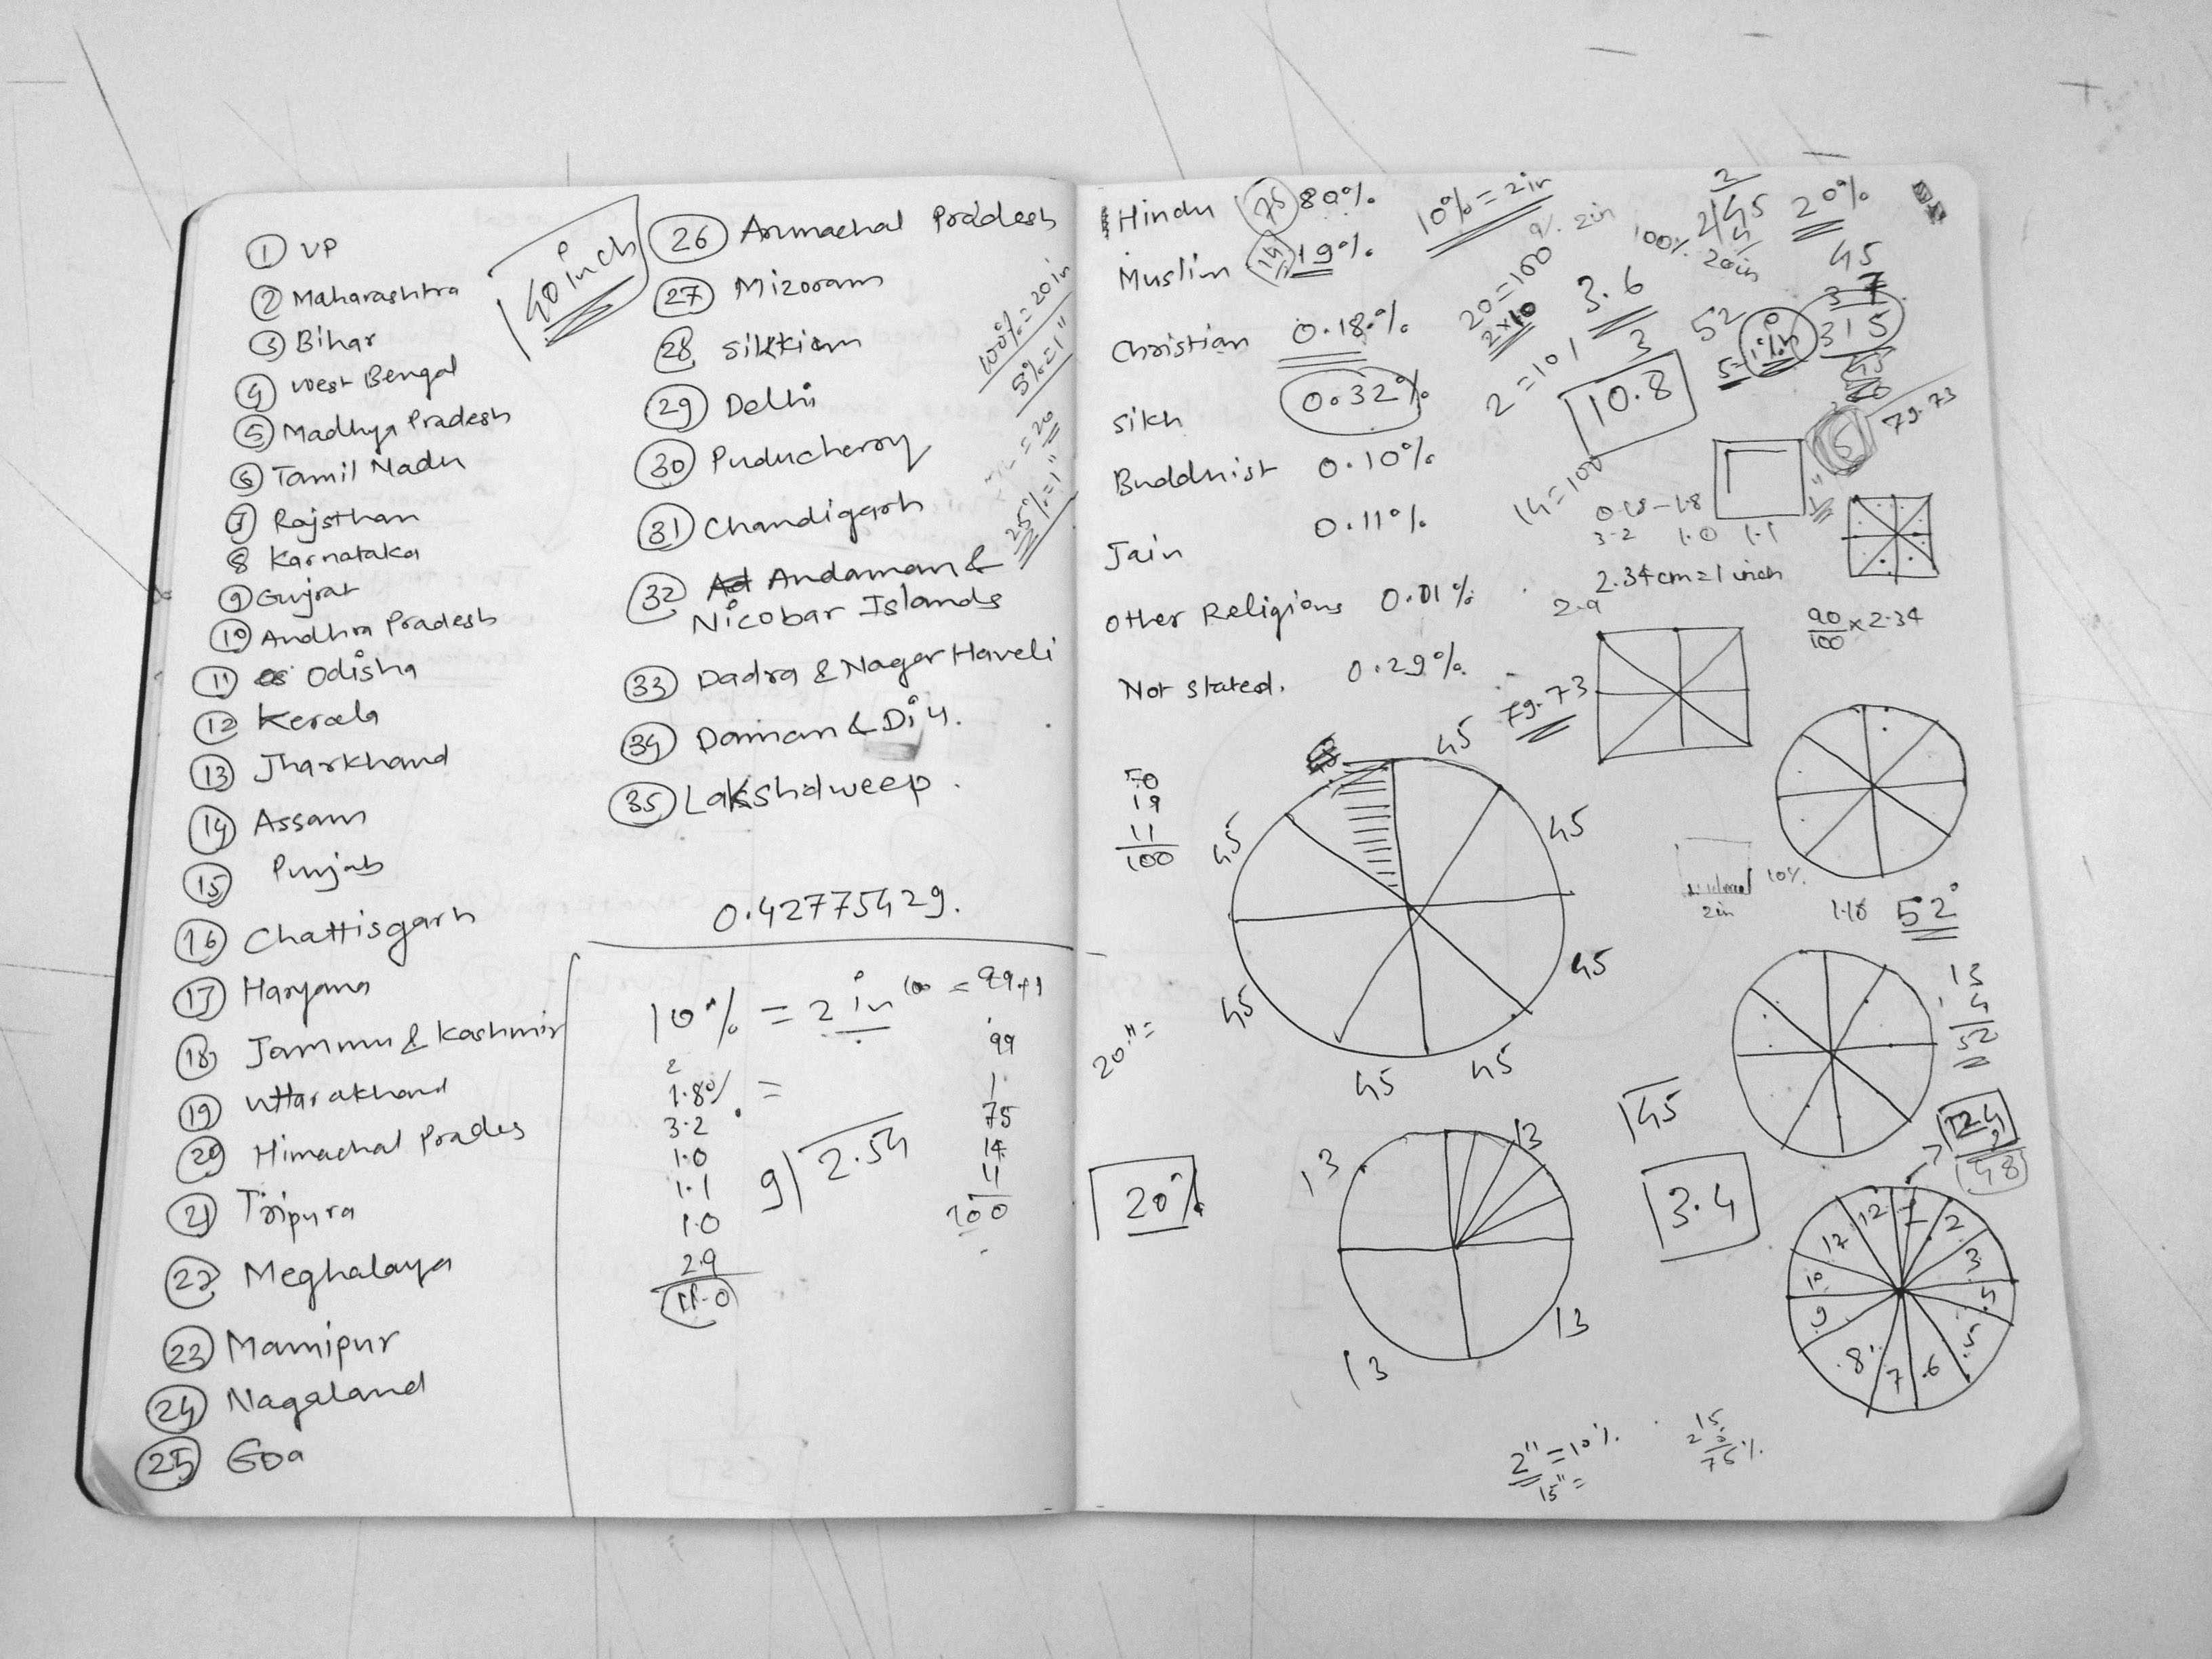 ① UP
② Maharashtra
③ Bihar
④ West Bengal
⑤ Madhya Pradesh
⑥ Tamil Nadu
⑦ Rajsthan
8 Karnataka
⑨ Gujrat
⑩ Andhra Pradesh
⑪ Odisha
⑫ Kerala
⑬ Jharkhand
⑭ Assam
⑮ Punjab
⑯ Chattisgarh
⑰ Haryana
⑱ Jammu & Kashmir
⑲ Uttarakhand
⑳ Himachal Prades
㉑ Tripura
㉒ Meghalaya
㉓ Manipur
㉔ Nagaland
㉕ Goa
40 inch
㉖ Arunachal Pradesh
㉗ Mizoram
㉘ Sikkim
㉙ Delhi
㉚ Puducherry
㉛ Chandigarh
㉜ Andaman &
Nicobar Islands
㉝ Dadra & Nagar Haveli
㉞ Daman & Diu.
㉟ Lakshdweep.
100% = 20in
5% = 1"
25% = 1"
0.42775429.
10% = 2 in
99
1
75
14
11
100
2
1.8%
3.2
1.0
1.1
1.0
2.9
11.0
9) 2.54
Hindu 75 80%
Muslim 14 19%
Christian 0.18%
Sikh 0.32%
Buddhist 0.10%
Jain 0.11%
Other Religions 0.01%
Not stated. 0.29%
10% = 2in
20 = 100
2 × 10
2 = 10
3.6
3
10.8
100% 20in
20%
45
7
315
52
79.73
14 = 100
0.18 - 1.8
3.2 1.0 1.1
2.34 cm = 1 inch
2.9
90/100 × 2.34
79.73
70
19
11
100
45
45
45
45
45
45
45
20" =
20%
10%
2in
1.18 52
13
4
52
45
3.4
13
13
13
13
124
48
12 1 2 3 5 5 6 7 8 9 10 12
2" = 10%
15" =
15
75%